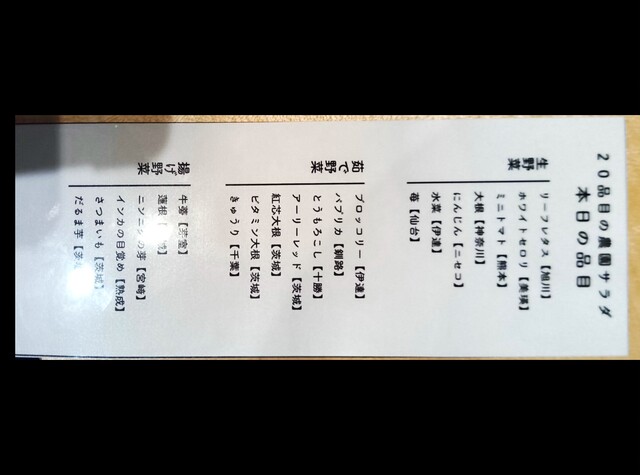 20品目の農園サラダ
本日の品目
生野菜
リーフレタス【旭川】
ホワイトセロリ【美瑛】
ミニトマト【熊本】
大根【神奈川】
にんじん【ニセコ】
水菜【伊達】
苺【仙台】
茹で野菜
ブロッコリー【伊達】
パプリカ【釧路】
とうもろこし【十勝】
アーリーレッド【茨城】
紅芯大根【茨城】
ビタミン大根【茨城】
きゅうり【千葉】
揚げ野菜
牛蒡【芽室】
蓮根
ニンニクの芽【宮崎】
インカの目覚め【熟成】
さつまいも【茨城】
だるま芋